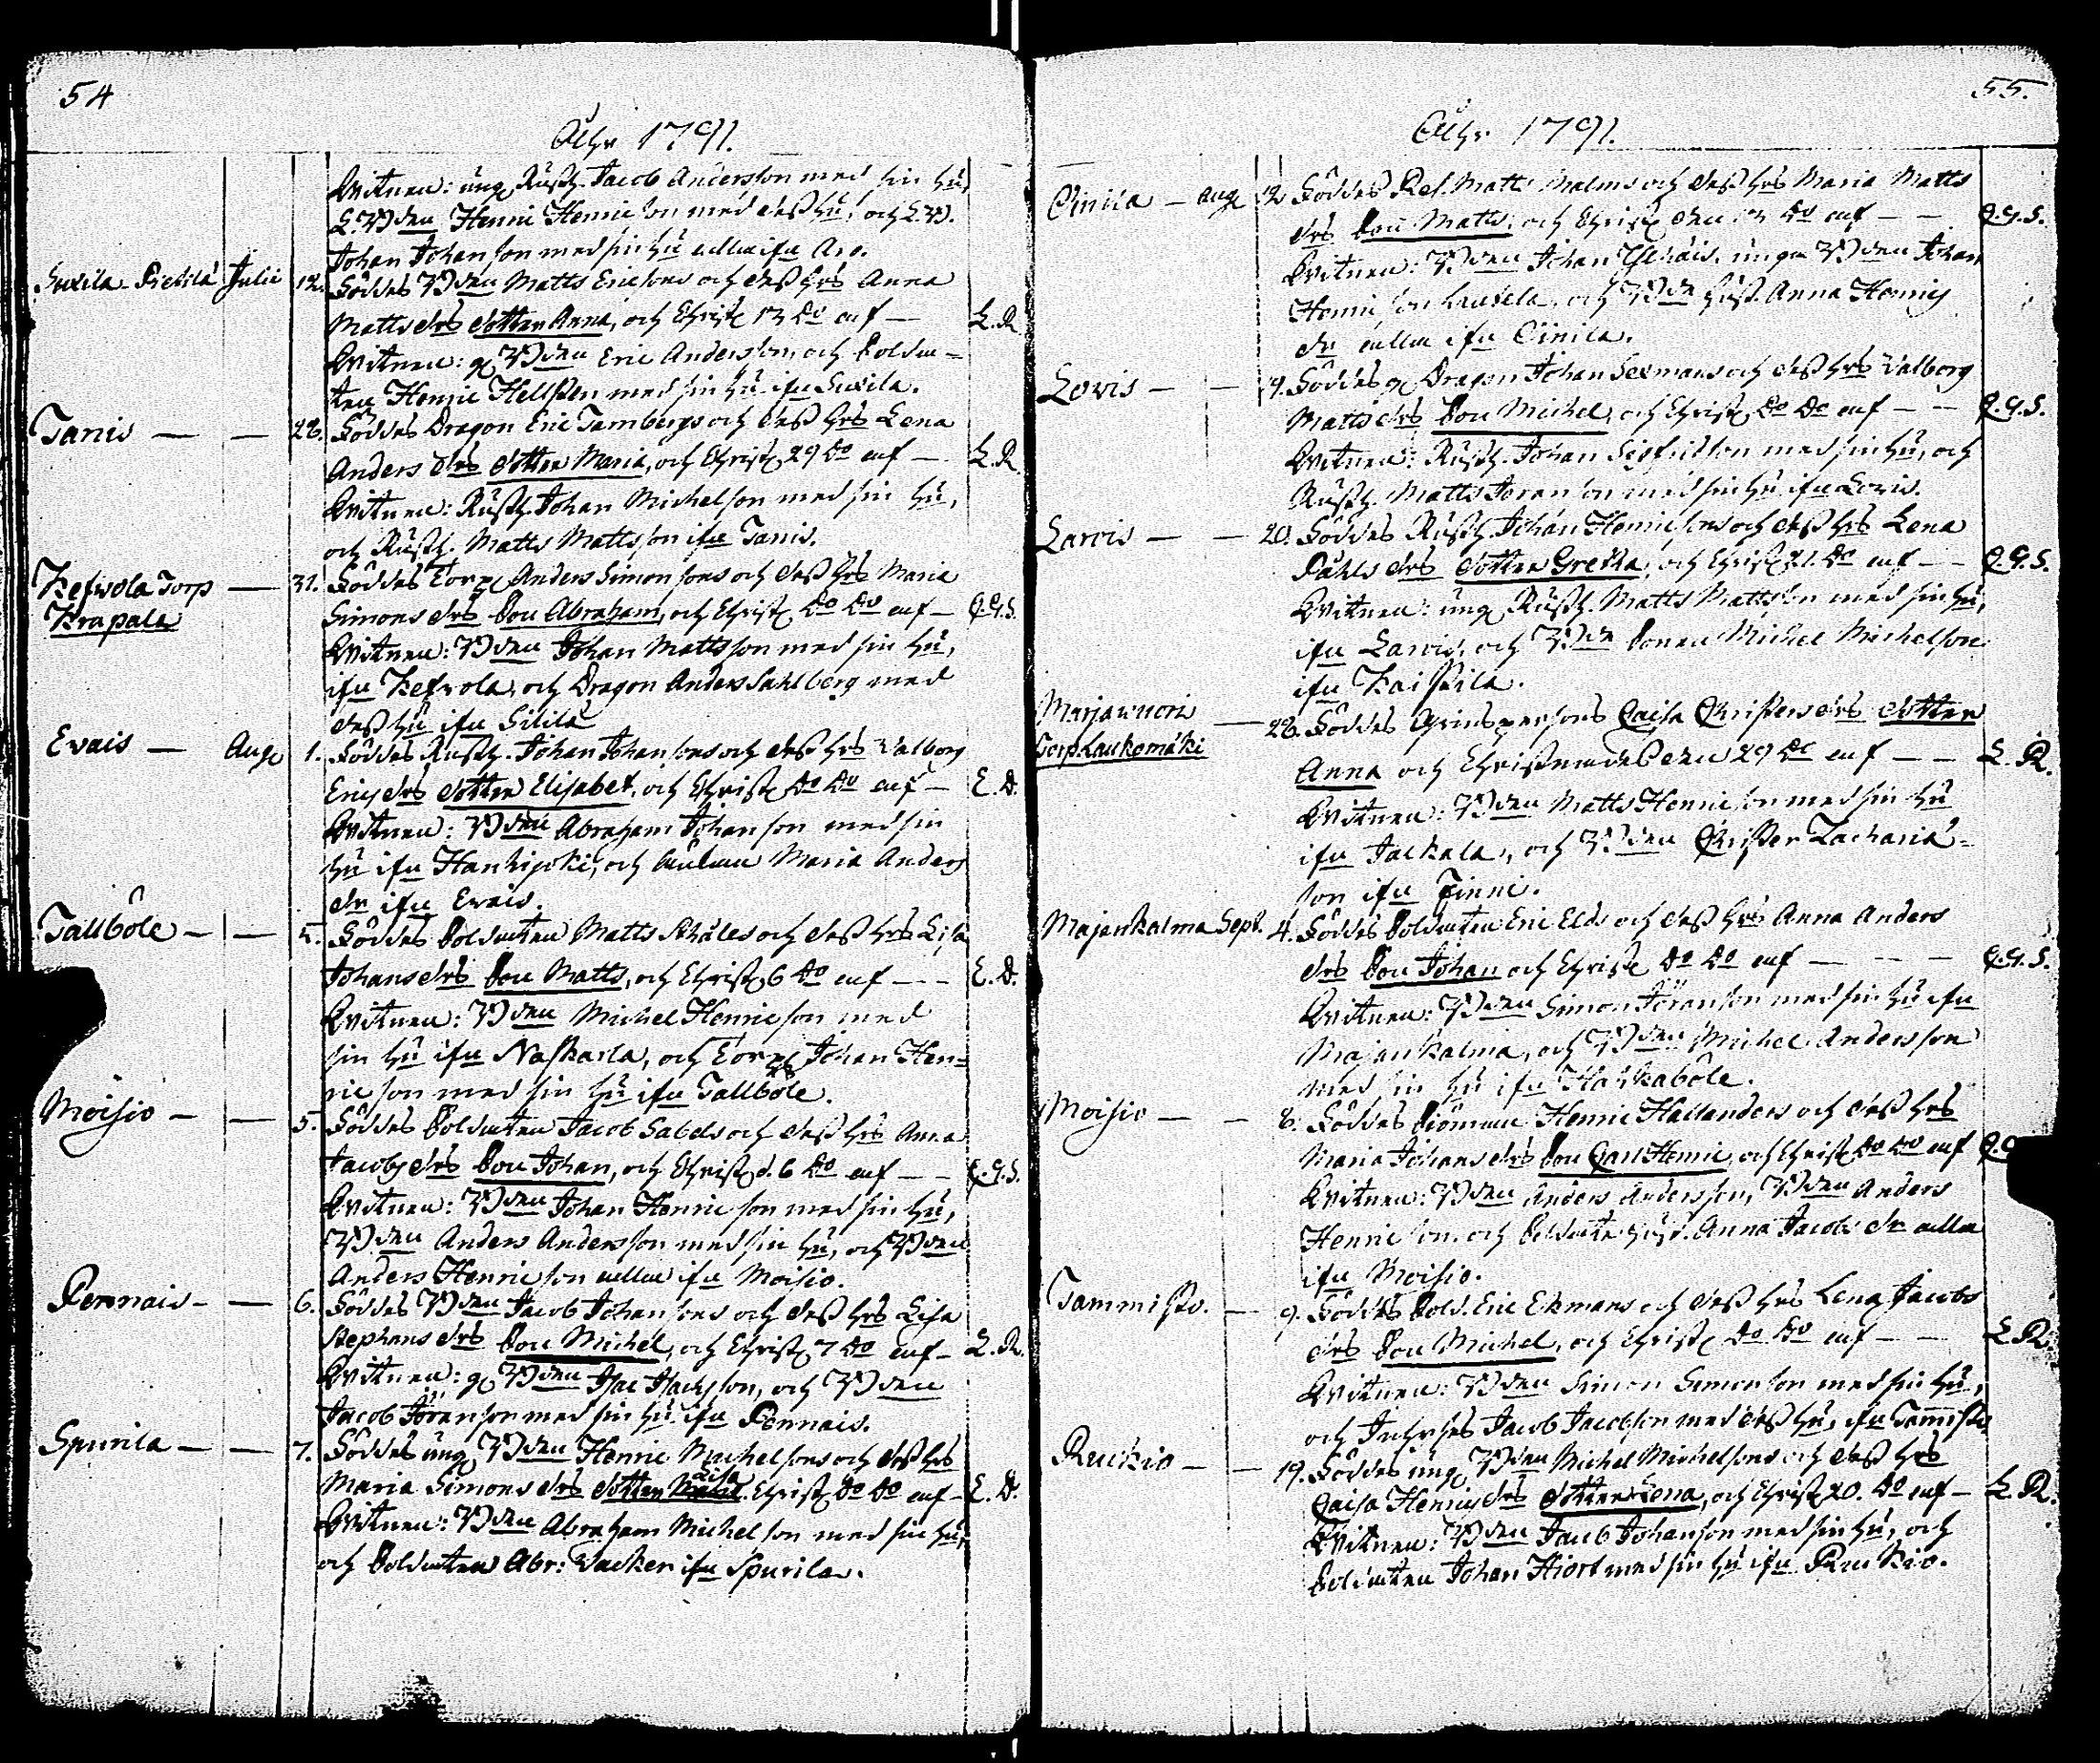 54
Åhr 1791.
Witnen: ung Rusth. Jacob Andersson med sin hu,
L. Bden Henric Henricson med dess hu, och L. B.
Johan Johansson med sin hu alla ifn Aro.
Suxila Pietilä Julii 12. Föddes Bden Matts Ericsons och dess hrs Anna
Matts drs dotter Anna, och Christ 13 do af — L. R.
Witnen: g Bden Eric Andersson, och Solda-
ten Henric Hellsten med sin hu ifn Suxila.
Tanis — — 28. Föddes Dragon Eric Tambergs och dess hrs Lena
Anders drs dotter Maria, och Christ 29 do af — L. R.
Witnen: Rusth. Johan Michelson med sin hu,
och Rusth. Matts Mattsson ifn Tanis.
Kefvola Torp — 31. Föddes Torp Anders Simonsons och dess hrs Maria
Krapala
Simons drs Son Abraham, och Christ do do af — Q.G.S.
Witnen: Bden Johan Mattsson med sin hu,
ifn Kefvola, och Dragon Anders Sahlberg med
dess hu ifn Sililä
Evais — Aug 1. Föddes Rusth. Johan Johansons och dess hrs Valborg
Erics drs dotter Elisabet, och Christ do do af — E. D.
Witnen: Bden Abraham Johanson med sin
hu ifn Hankijoki, och Maria Anders
dr ifn Evais.
Tallböle — — 5. Föddes Soldaten Matts Ståles och dess hrs Lisa
Johans drs Son Matts, och Christ 6 do af — — E. D.
Witnen: Bden Michel Henricson med
sin hu ifn Naskarla, och Torp Johan Hen-
ricson med sin hu ifn Tallböle.
Moisio — — 5. Föddes Soldaten Jacob Sabels och dess hrs Anna
Jacobs drs Son Johan, och Christ d. 6 do af — — Q.G.S.
Witnen: Bden Johan Henricson med sin hu,
Bden Anders Andersson med sin hu, och Bden
Anders Henricson alla ifn Moisio.
Pennais — — 6. Föddes Bden Jacob Johansons och dess hrs Lisa
Stephans drs Son Michel, och Christ 7 do af — L. R.
Witnen: g Bden Isac Isacsson, och Bden
Jacob Jöranson med sin hu ifn Pennais.
Spurila — — 7. Föddes ung Bden Henric Michelsons och dess hrs
Lisa
Maria Simons drs dotter Maria. Christ do do af — E. D.
Witnen: Bden Abraham Michelson med sin hu,
och Soldaten Abr: Vacker ifn Spurila.
55.
Åhr 1791.
Qinila — Aug 12. Föddes Res. Matts Malms och dess hrs Maria Matts
drs Son Matts, och Christ den 13 do af — — Q.G.S.
Witnen: Bden Johan , unga Bden Johan
Henricson Lautela, och Bde Hust. Anna Henrics
dr alla ifn Qinila.
Lovis — — 19. Föddes g Dragon Johan Sexmans och dess hrs Valborg
Matts drs Son Michel, och Christ do do af — — Q.G.S.
Witnen: Rusth. Johan Sigfridson med sin hu, och
Rusth. Matts Joranson med sin hu ifn Lovis.
Larvis — — 20. Föddes Rusth. Johan Henricsons och dess hrs Lena
Påhls drs dotter Gretha, och Christ 21. do af — — Q.G.S.
Witnen: ung Rusth. Matts Mattsson med sin hu,
ifn Larvis, och Bde Sonen Michel Michelson
ifn Kaistila.
Marjavuori — 28. Föddes Qvinspersons Caisa Christers drs dotter
Torp Laukomäki
Anna och Christnades den 29 do af — — L. R.
Witnen: Bden Matts Henricson med sin hu
ifn Talkala, och Bden Christer Zacharia-
son ifn Finni.
Majankalma Sept. 4. Föddes Soldaten Eric Elds och dess hrs Anna Anders
drs Son Johan och Christ do do af — — — Q.G.S.
Witnen: Bden Simon Jöranson med sin hu ifn
Majankalma, och Bden Michel Andersson
med sin hu ifn Hahkaböle.
Moisio — — 8. Föddes Henric Hallanders och dess hrs
Maria Johans drs Son Carl Henric, och Christ do do af
Witnen: Bden Anders Andersson, Bden Anders
Henricson och Soldate Hust. Anna Jacobs dr alla
ifn Moisio.
Tammisto. — 9. Föddes Sold. Eric Ekmans och dess hrs Lena Jacobs
drs Son Michel, och Christ do do af — — L. R.
Witnen: Bden Simon Simonson med sin hu,
och Inhyses Jacob Jacobson med dess hu, ifn Tammisto.
Ruckio — — 19. Föddes ung Bden Michel Michelsons och dess hrs
Caisa Henrics drs dotter Lena, och Christ 20. do af — L. R.
Witnen: Bden Jacob Johanson med sin hu, och
Soldaten Johan Hjort med sin hu ifn Ruckio.